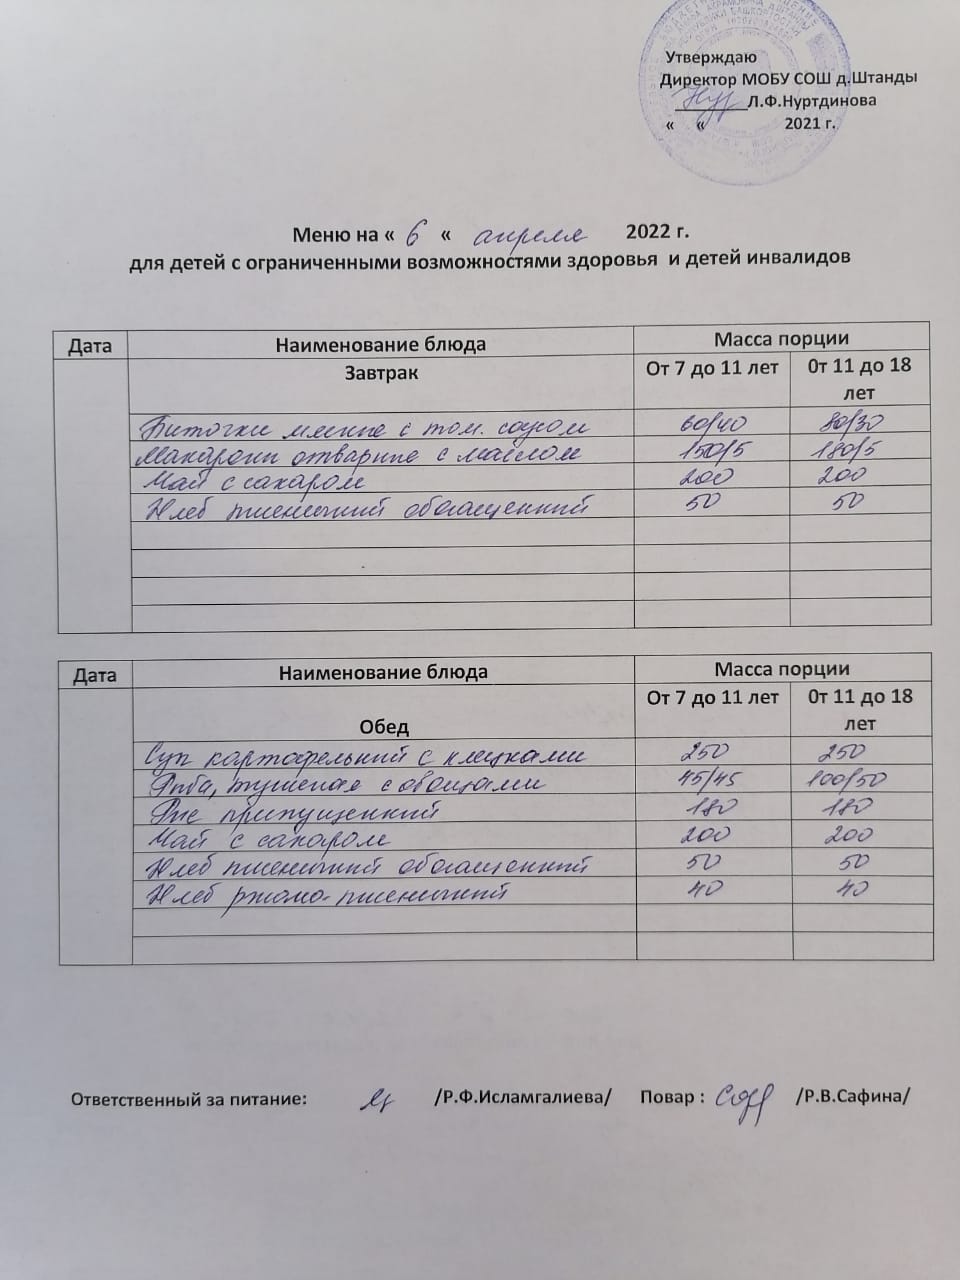 Утверждаю
Директор МОБУ СОШ д.Штанды
Л.Ф.Нуртдинова
« « 2021 г.
Меню на « 6 « апреля 2022 г.
для детей с ограниченными возможностями здоровья и детей инвалидов
Дата Наименование блюда Масса порции
Завтрак От 7 до 11 лет 0т 11 до 18 лет
Биточки мясные с том. соусом 60/40 80/30
Макароны отварные с маслом 150/5 180/5
Чай с сахаром 200 200
Хлеб пшеничный обогащенный 50 50
Дата Наименование блюда Масса порции
Обед От 7 до 11 лет 0т 11 до 18 лет
Суп картофельный с клецками 250 250
Рыба, тушеная с овощами 45/45 100/50
Рис припущенный 180 180
Чай с сахаром 200 200
Хлеб пшеничный обогащенный 50 50
Хлеб ржано-пшеничный 40 40
Ответственный за питание: /Р.Ф.Исламгалиева/ Повар : /Р.В.Сафина/